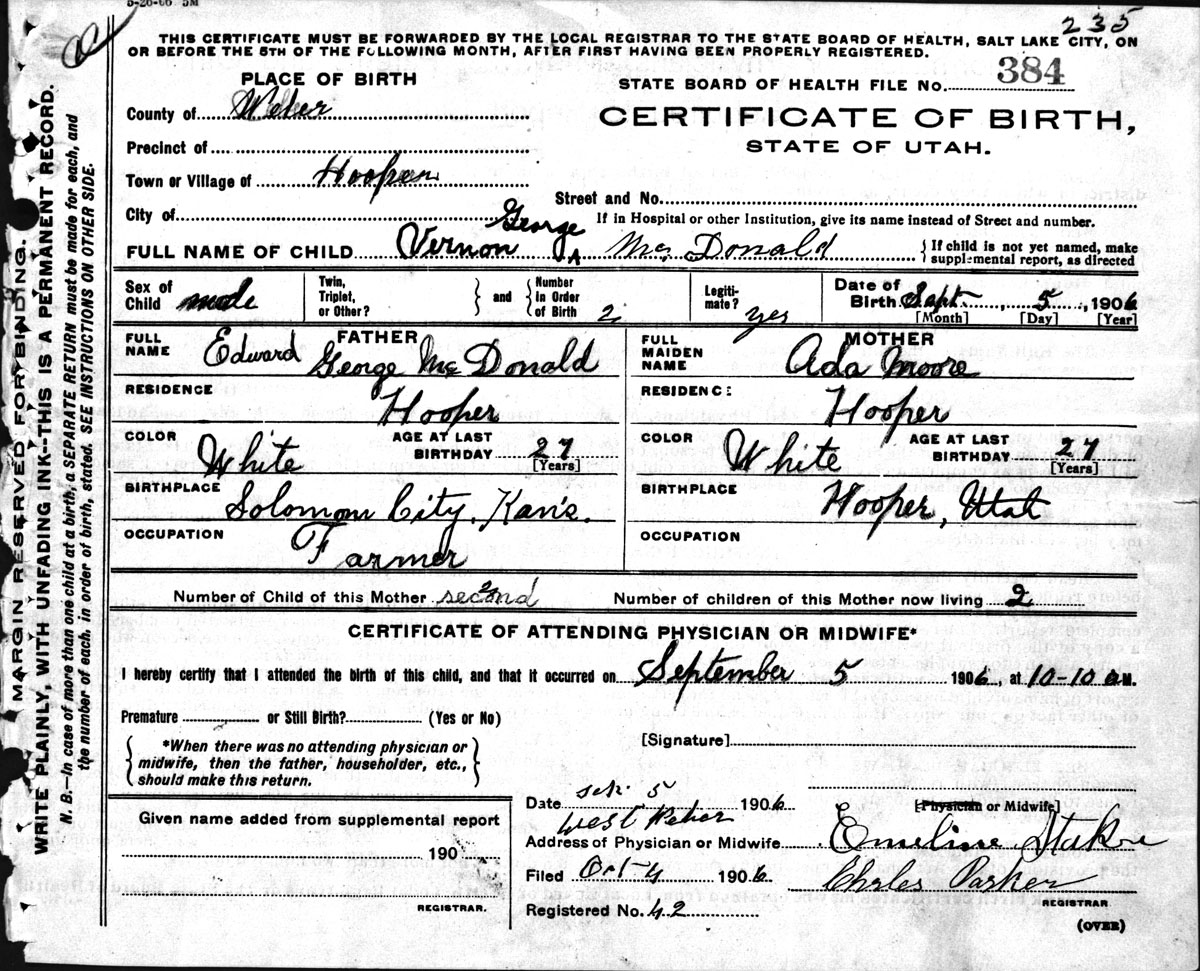 5-26-06 5M
235
THIS CERTIFICATE MUST BE FORWARDED BY THE LOCAL REGISTRAR TO THE STATE BOARD OF HEALTH, SALT LAKE CITY, ON
OR BEFORE THE 5TH OF THE FOLLOWING MONTH, AFTER FIRST HAVING BEEN PROPERLY REGISTERED.
PLACE OF BIRTH
STATE BOARD OF HEALTH FILE No. 384
County of Weber
CERTIFICATE OF BIRTH,
STATE OF UTAH.
Precinct of
Town or Village of Hooper
Street and No.
City of
If in Hospital or other Institution, give its name instead of Street and number.
FULL NAME OF CHILD Vernon George Mc Donald
{ If child is not yet named, make
supplemental report, as directed
Sex of Child male
Twin, Triplet, or Other? } and { Number in Order of Birth 2
Legiti-mate? yes
Date of Birth Sept. 5, 1906
[Month] [Day] [Year]
FATHER
FULL NAME Edward George Mc Donald
MOTHER
FULL MAIDEN NAME Ada Moore
RESIDENCE Hooper
RESIDENCE Hooper
COLOR White AGE AT LAST BIRTHDAY 27 [Years]
COLOR White AGE AT LAST BIRTHDAY 27 [Years]
BIRTHPLACE Solomon City, Kan's.
BIRTHPLACE Hooper, Utah
OCCUPATION Farmer
OCCUPATION
Number of Child of this Mother second 2
Number of children of this Mother now living 2
CERTIFICATE OF ATTENDING PHYSICIAN OR MIDWIFE*
I hereby certify that I attended the birth of this child, and that it occurred on September 5 1906, at 10-10 a M.
Premature or Still Birth? (Yes or No)
*When there was no attending physician or
midwife, then the father, householder, etc.,
should make this return.
[Signature]
[Physician or Midwife]
Emeline
Date 5 1906
West Weber
Address of Physician or Midwife
Given name added from supplemental report
190
REGISTRAR.
Filed Oct-4 1906
Parker
REGISTRAR
Registered No. 42
(OVER)
MARGIN RESERVED FOR BINDING.
WRITE PLAINLY, WITH UNFADING INK--THIS IS A PERMANENT RECORD.
N. B.—In case of more than one child at a birth, a SEPARATE RETURN must be made for each, and
the number of each, in order of birth, stated. SEE INSTRUCTIONS ON OTHER SIDE.